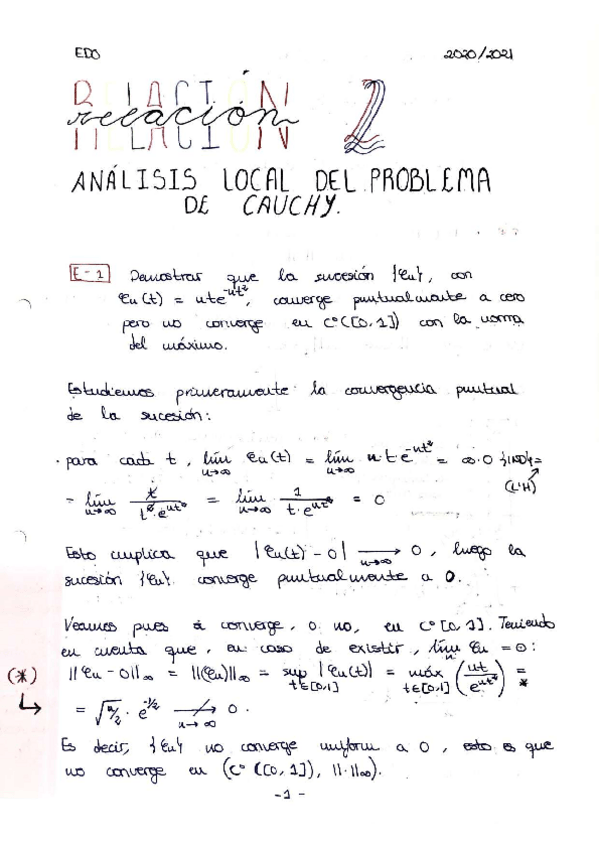 EDO 2020/2021
RELACIÓN relación 2
ANÁLISIS LOCAL DEL PROBLEMA
DE CAUCHY.
E-1 Demostrar que la sucesión {φn}, con
φn(t) = nte^{-nt²}, converge puntualmente a cero
pero no converge en C⁰([0,1]) con la norma
del máximo.
Estudiemos primeramente la convergencia puntual
de la sucesión:
· para cada t, lím_{n→∞} φn(t) = lím_{n→∞} n·t·e^{-nt²} = ∞·0 {IND} =
(L'H)
= lím_{n→∞} t/(t²·e^{nt²}) = lím_{n→∞} 1/(t·e^{nt²}) = 0
Esto implica que |φn(t) - 0| →_{n→∞} 0, luego la
sucesión {φn} converge puntualmente a 0.
Veamos pues si converge, o no, en C⁰[0,1]. Teniendo
en cuenta que, en caso de existir, lím_n φn = 0:
(*) ||φn - 0||∞ = ||φn||∞ = sup_{t∈[0,1]} |φn(t)| = máx_{t∈[0,1]} (nt/e^{nt²}) =*
= √(n/2) · e^{-1/2} ↛_{n→∞} 0.
Es decir, {φn} no converge uniform a 0, esto es que
no converge en (C⁰([0,1]), ||·||∞).
-1-